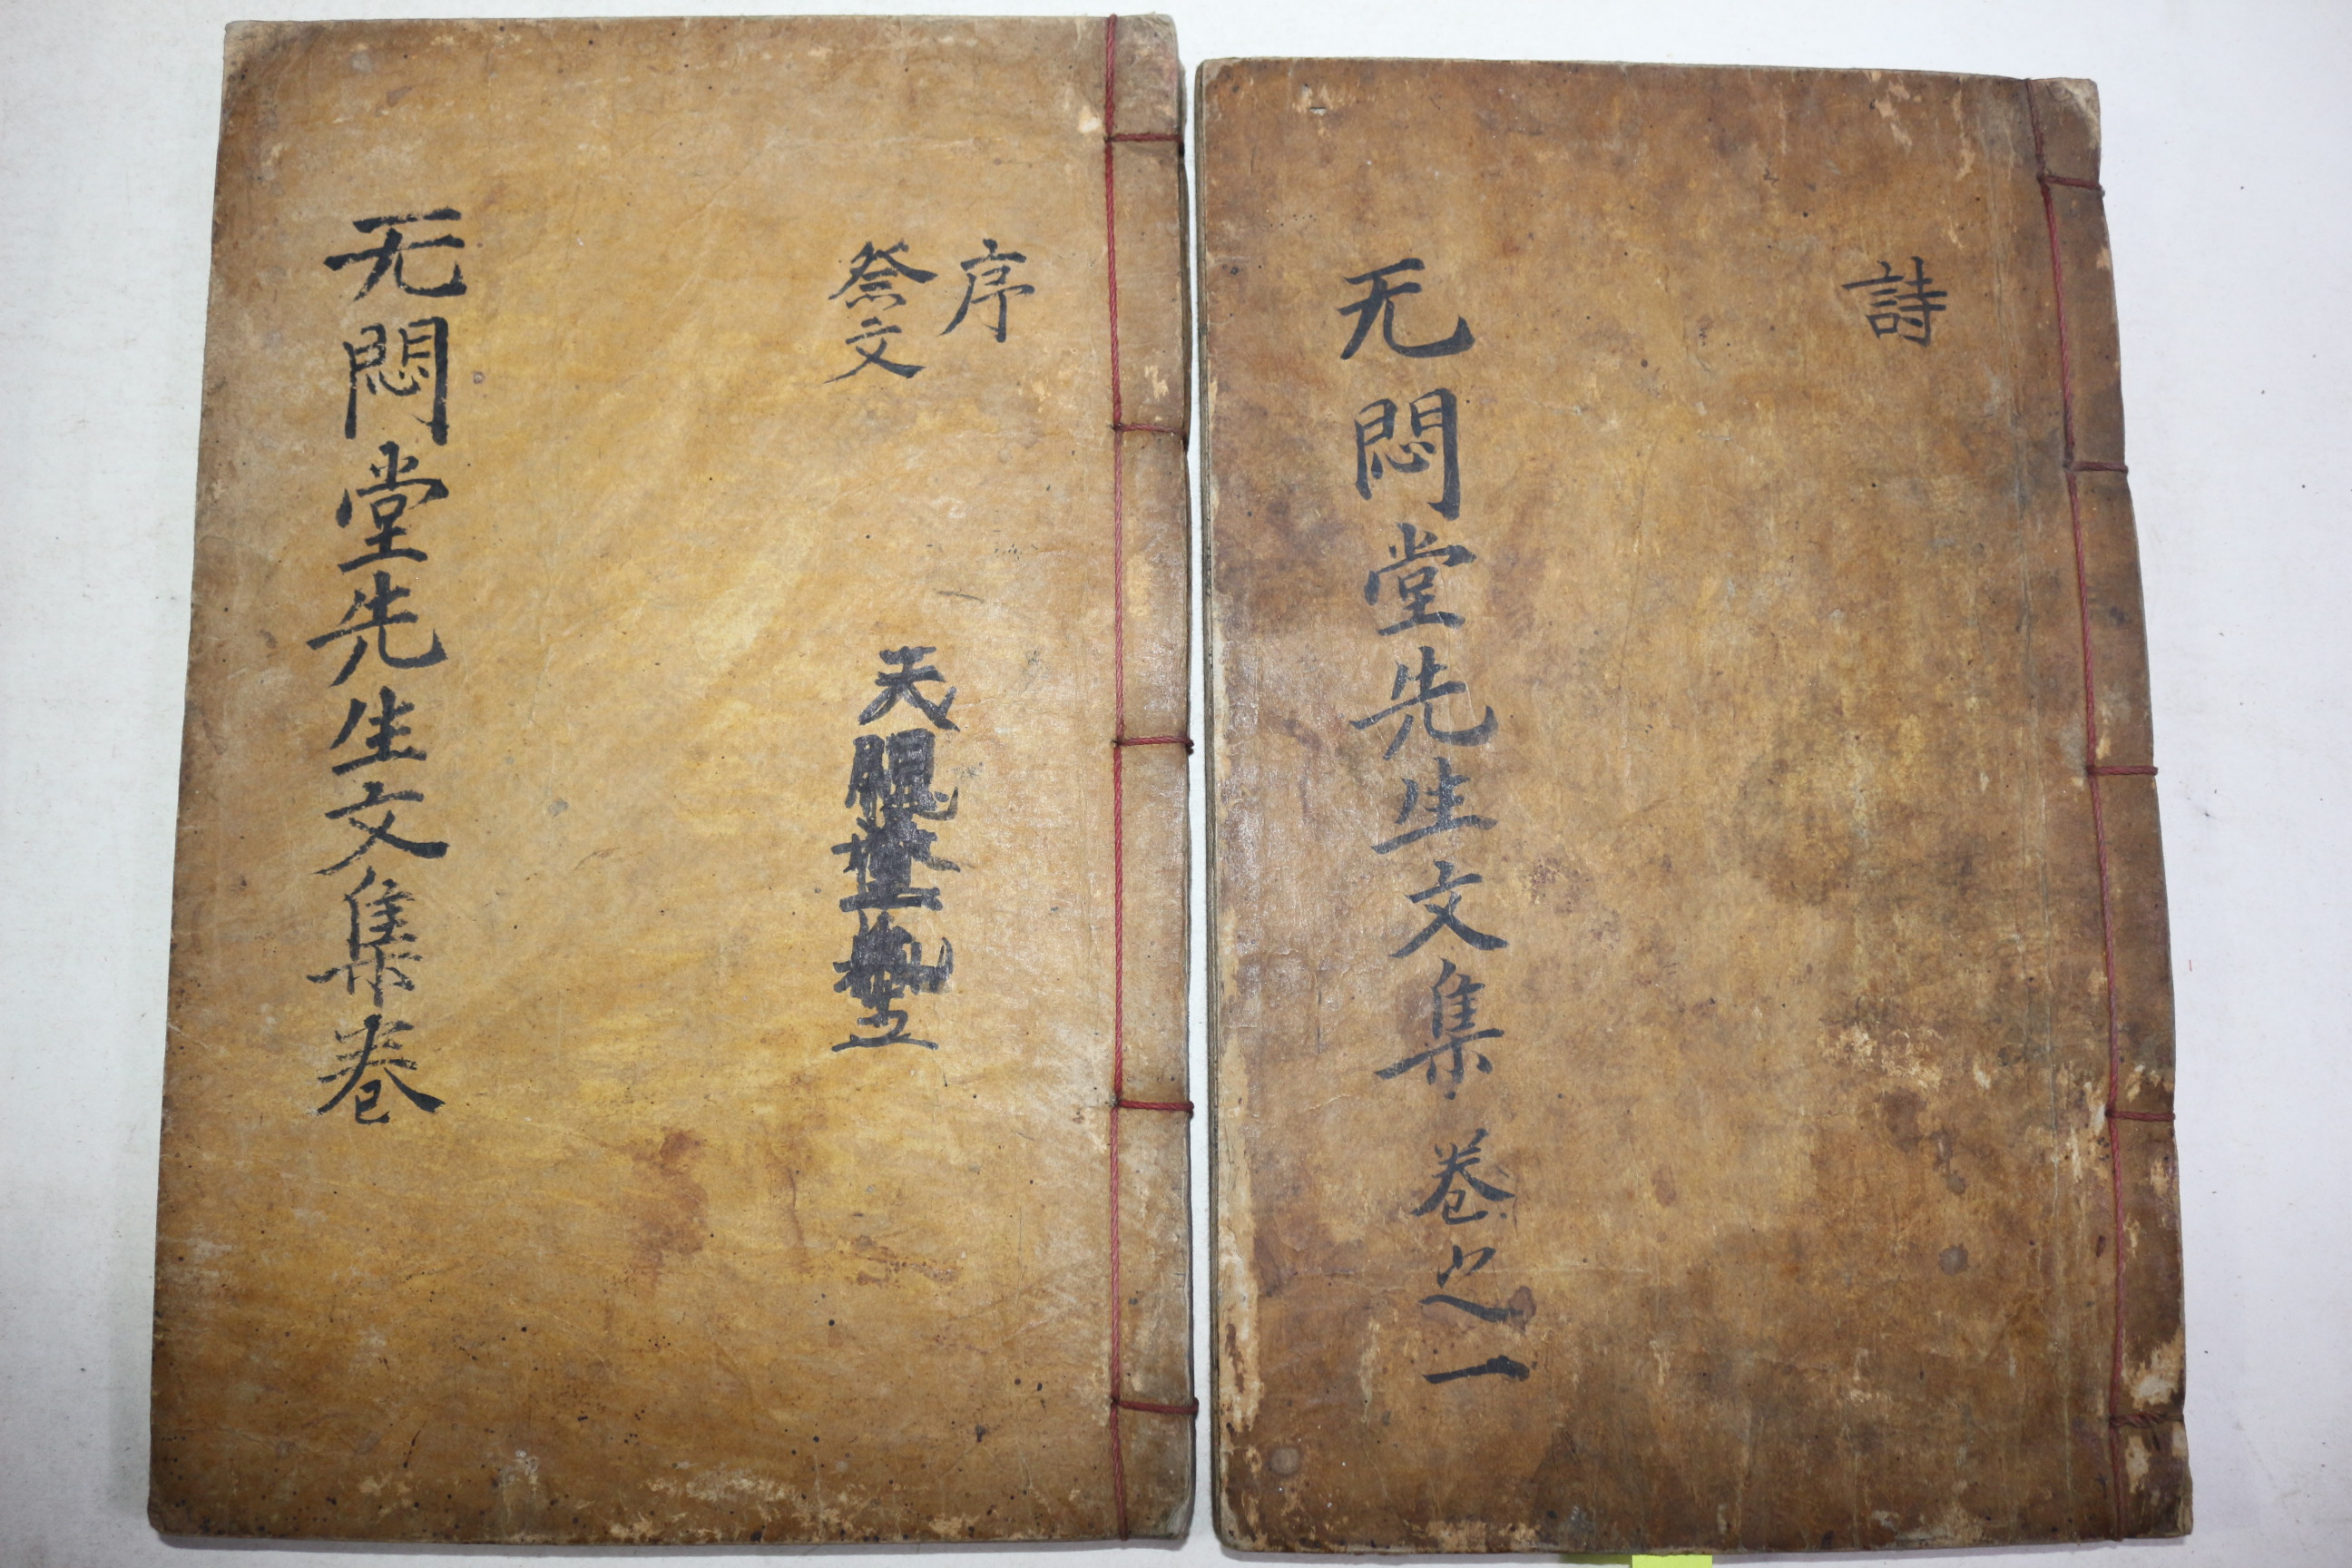 詩
无悶堂先生文集 卷之一
序
祭文
无悶堂先生文集卷